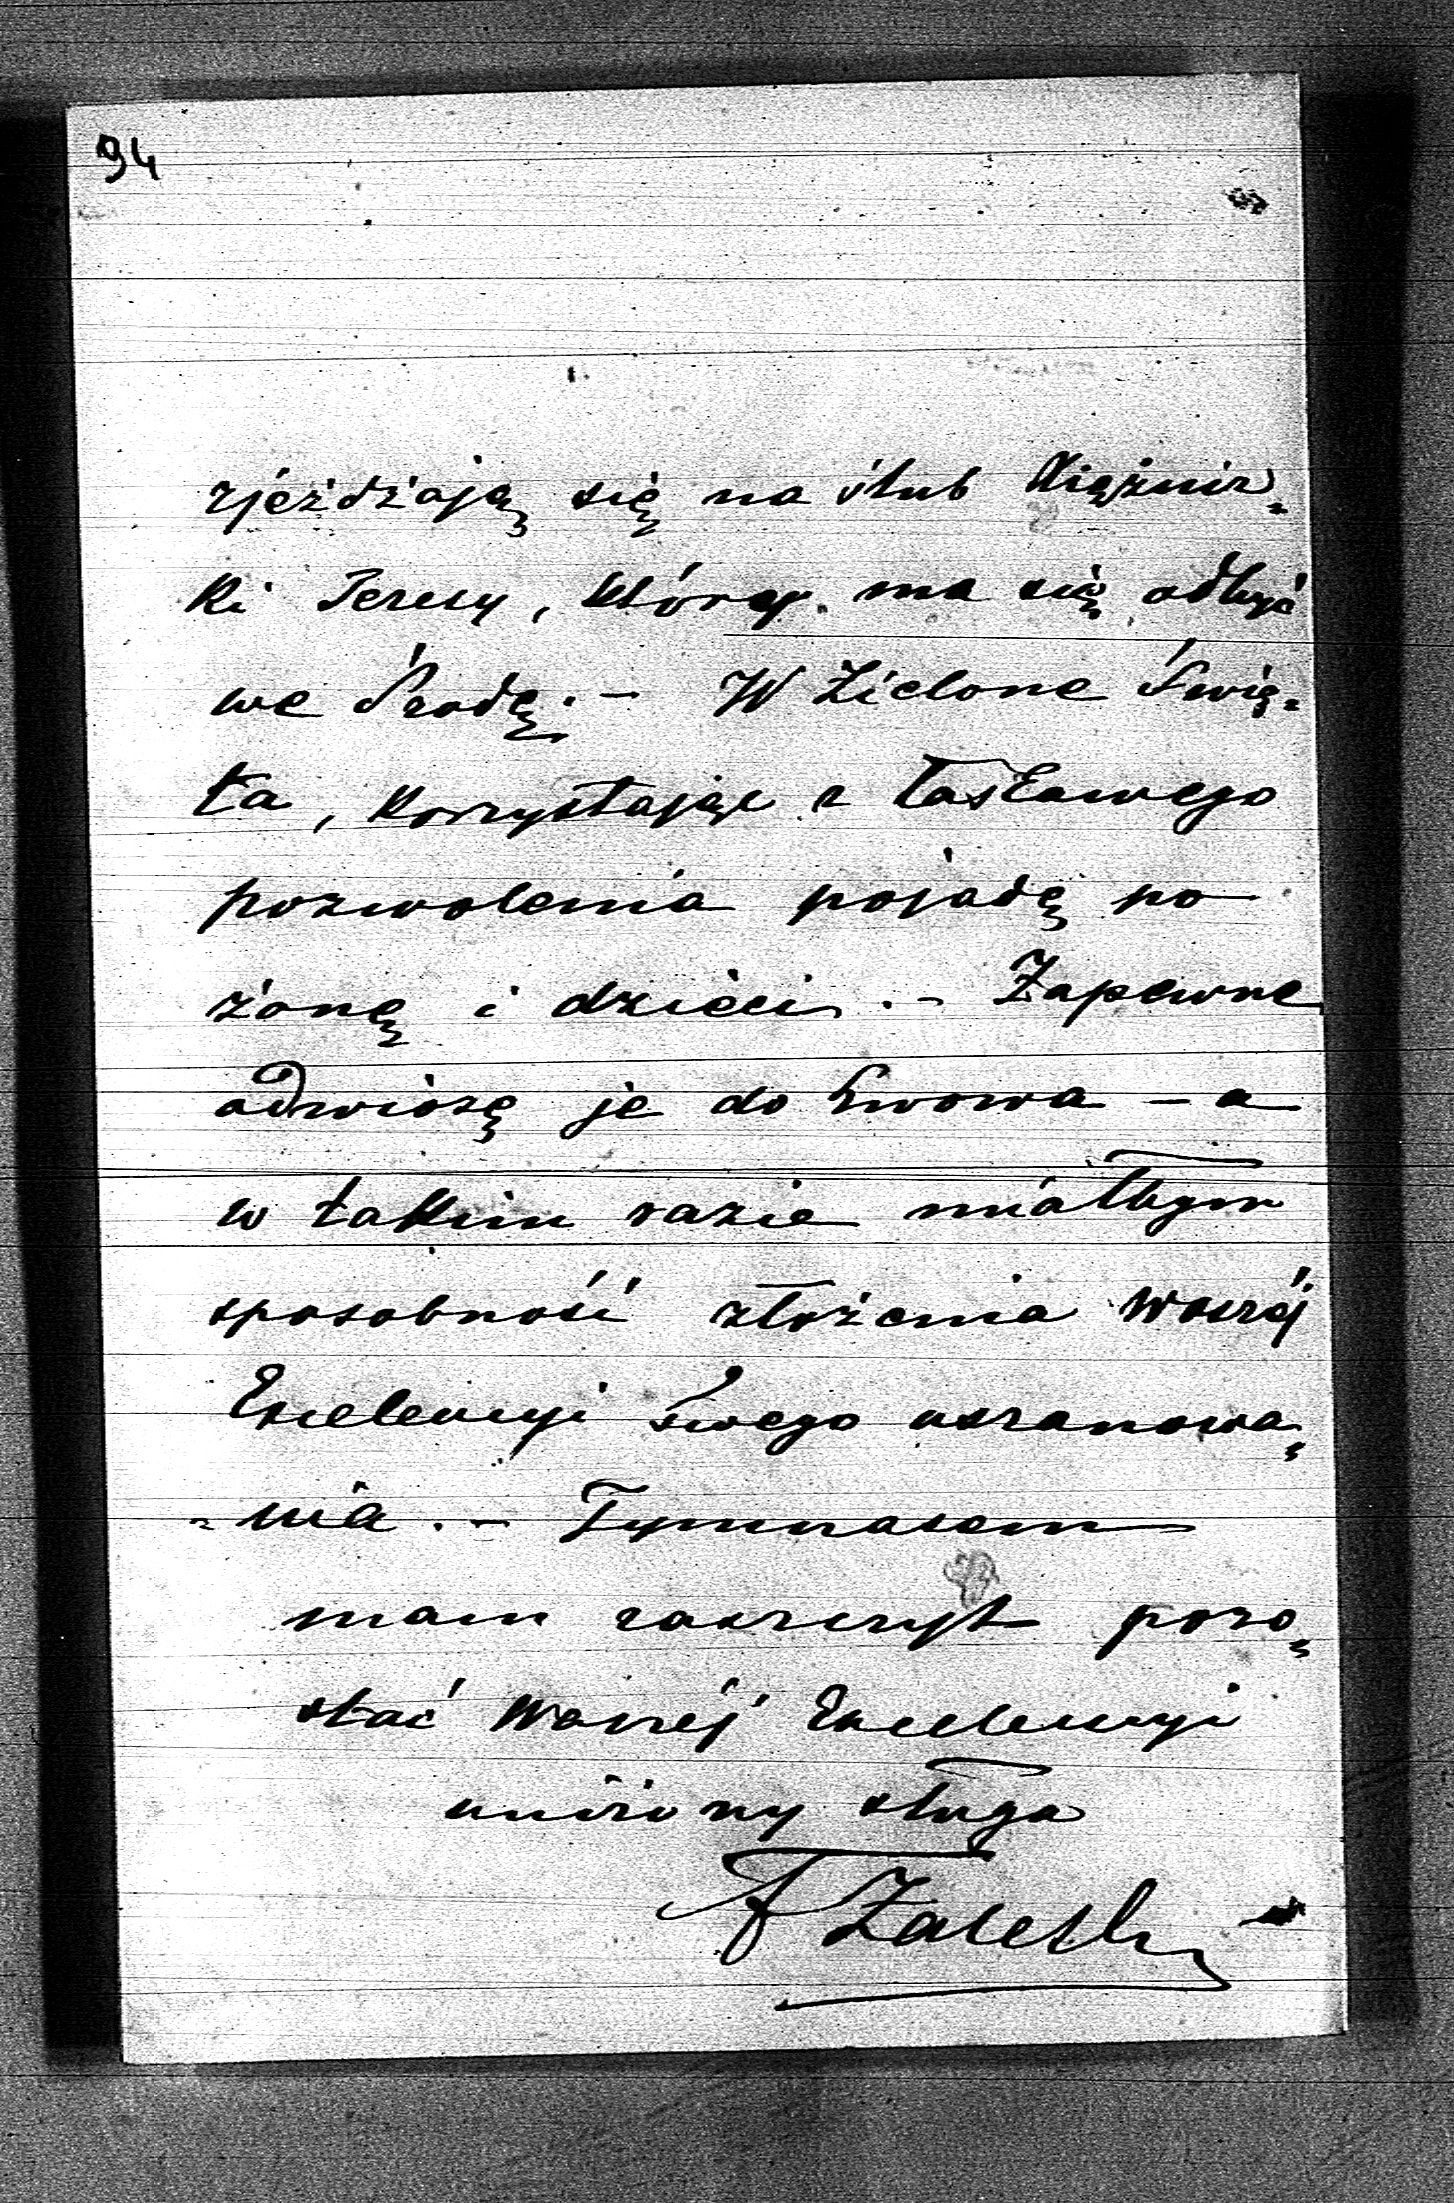 94
zjeżdżają się na ślub Księżnicz-
ki Teresy, który ma się odbyć
we Środę. - W Zielone Świę-
ta, korzystając z łaskawego
pozwolenia pojadę po
żonę i dzieci. - Zapewne
odwiozę je do Lwowa - a
w takim razie miałbym
sposobność złożenia Waszéj
Excelencyi swego uszanowa-
-nia. - Tymczasem
mam zaszczyt pozo-
stać Waszéj Excelencyi
uniżony sługa
F Zaleski